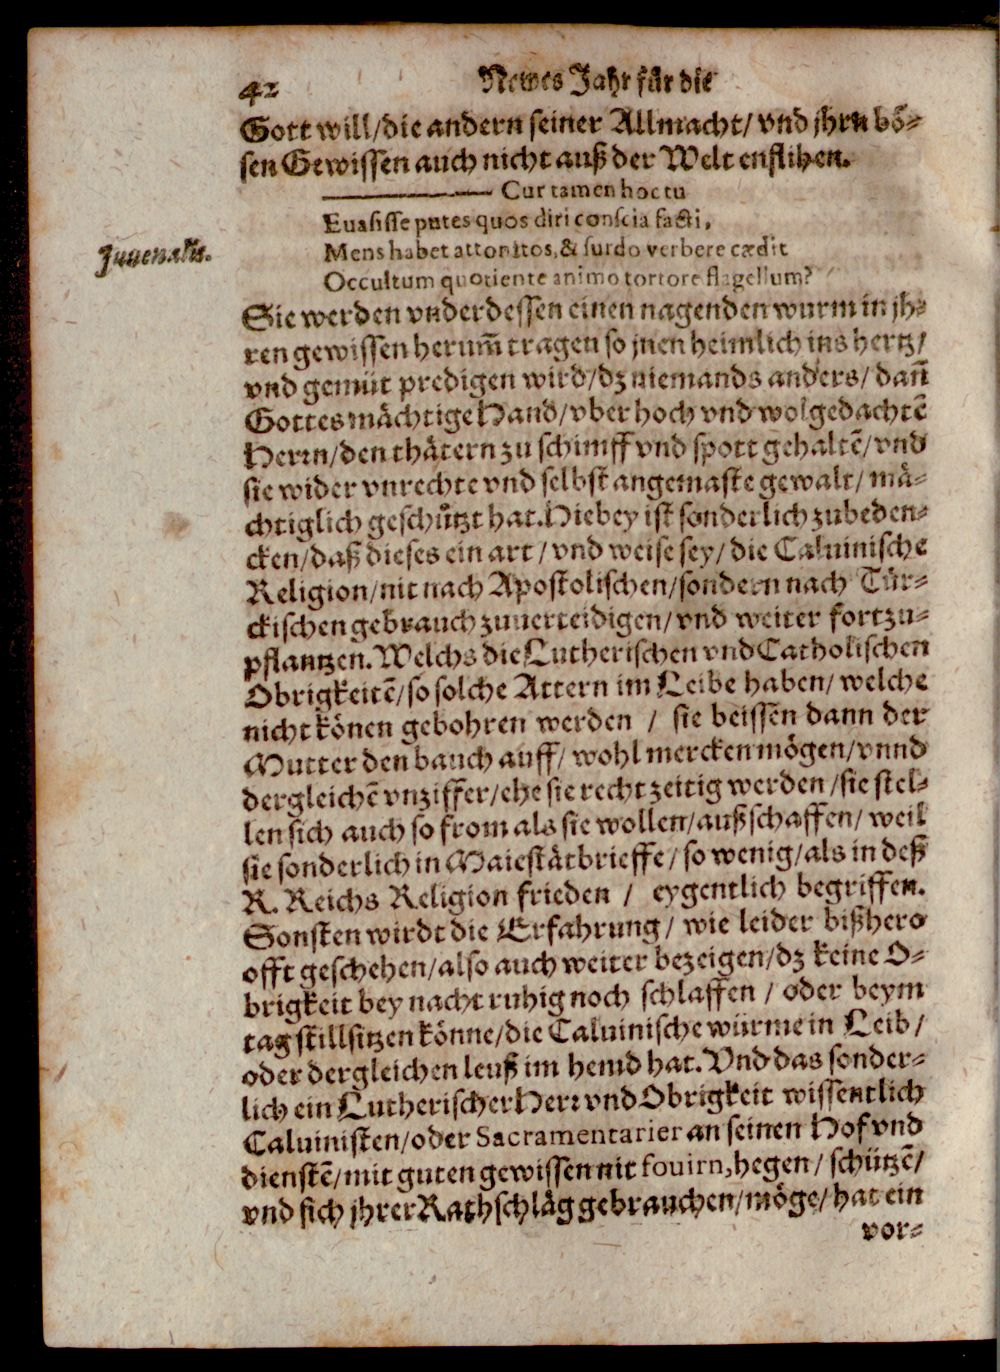 42 Newes Jahr für die
Gott will/die andern seiner Allmacht/ vnd jhrn bö-
sen Gewissen auch nicht auß der Welt enflihen.
Cur tamen hoc tu
Euasisse putes quos diri conscia facti,
Juuenalis.
Mens habet attonitos, & surdo verbere cædit
Occultum quotiente animo tortore flagellum?
Sie werden vnderdessen einen nagenden wurm in jh-
ren gewissen herum̃ tragen so jnen heimlich ins hertz/
vnd gemüt predigen wird/dz niemands anders/ dañ
Gottes mächtige Hand/vber hoch vnd wolgedachtē
Herrn/den thätern zu schimff vnd spott gehaltē/ vnd
sie wider vnrechte vnd selbst angemaste gewalt/ mä-
chtiglich geschützt hat. Hiebey ist sonderlich zubeden-
cken/daß dieses ein art / vnd weise sey/ die Caluinische
Religion/nit nach Apostolischen/sondern nach Tür-
ckischen gebrauch zuuerteidigen/ vnd weiter fortzu-
pflantzen. Welchs die Lutherischen vnd Catholischen
Obrigkeitē/so solche Attern im Leibe haben/ welche
nicht könen gebohren werden / sie beissen dann der
Mutter den bauch auff/ wohl mercken mögen/vnnd
dergleichē vnziffer/ehe sie recht zeitig werden /sie stel-
len sich auch so from als sie wollen/außschaffen/ weil
sie sonderlich in Maiestätbrieffe/ so wenig/als in deß
R. Reichs Religion frieden / eygentlich begriffen.
Sonsten wirdt die Erfahrung/ wie leider bißhero
offt geschehen/also auch weiter bezeigen/dz keine O-
brigkeit bey nacht ruhig noch schlaffen / oder beym
tag stillsitzen könne/die Caluinische würme in Leib/
oder dergleichen leuß im hemd hat. Vnd das sonder-
lich ein Lutherischer Herr vnd Obrigkeit wissentlich
Caluinisten/oder Sacramentarier an seinen Hof vnd
dienstē/mit guten gewissen nit fouirn, hegen/ schützē/
vnd sich jhrer Rathschläg gebrauchen/möge/ hat ein
vor-